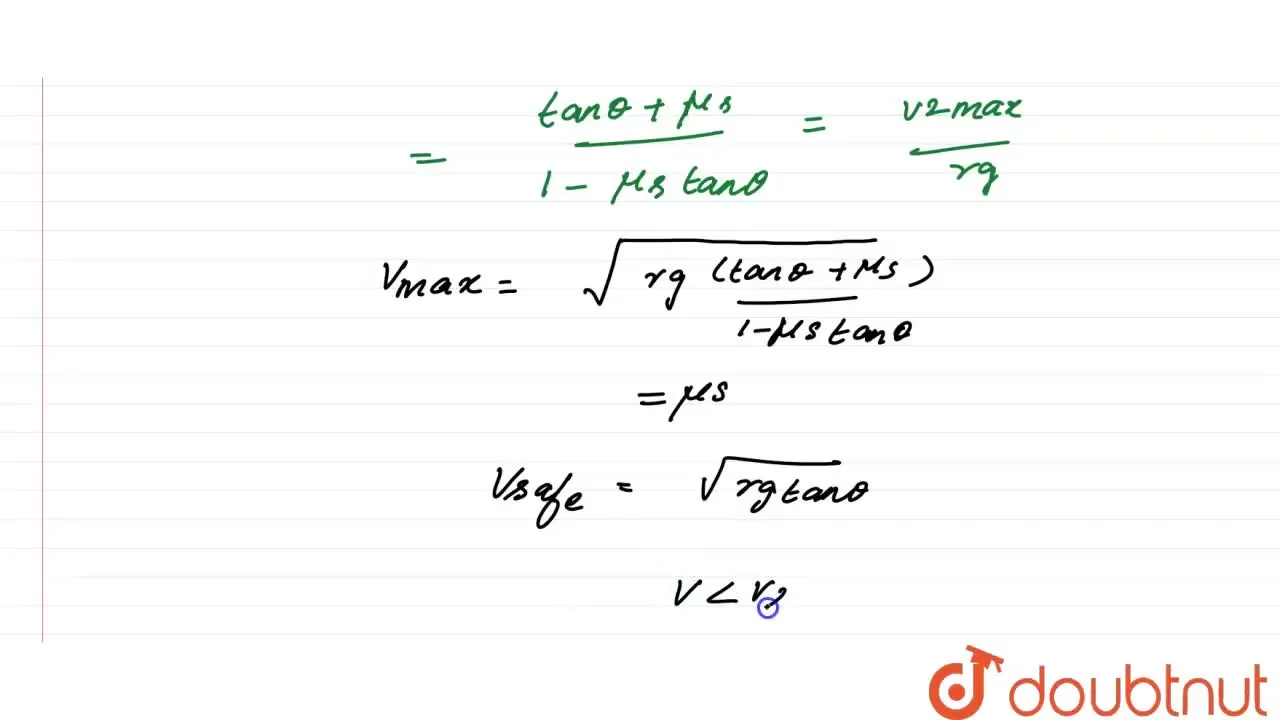 = tanθ + μs / 1 - μs tanθ = v2max / rg
Vmax = √ rg (tanθ + μs) / 1-μs tanθ
= μs
Vsafe = √rg tanθ
V < Vs
doubtnut